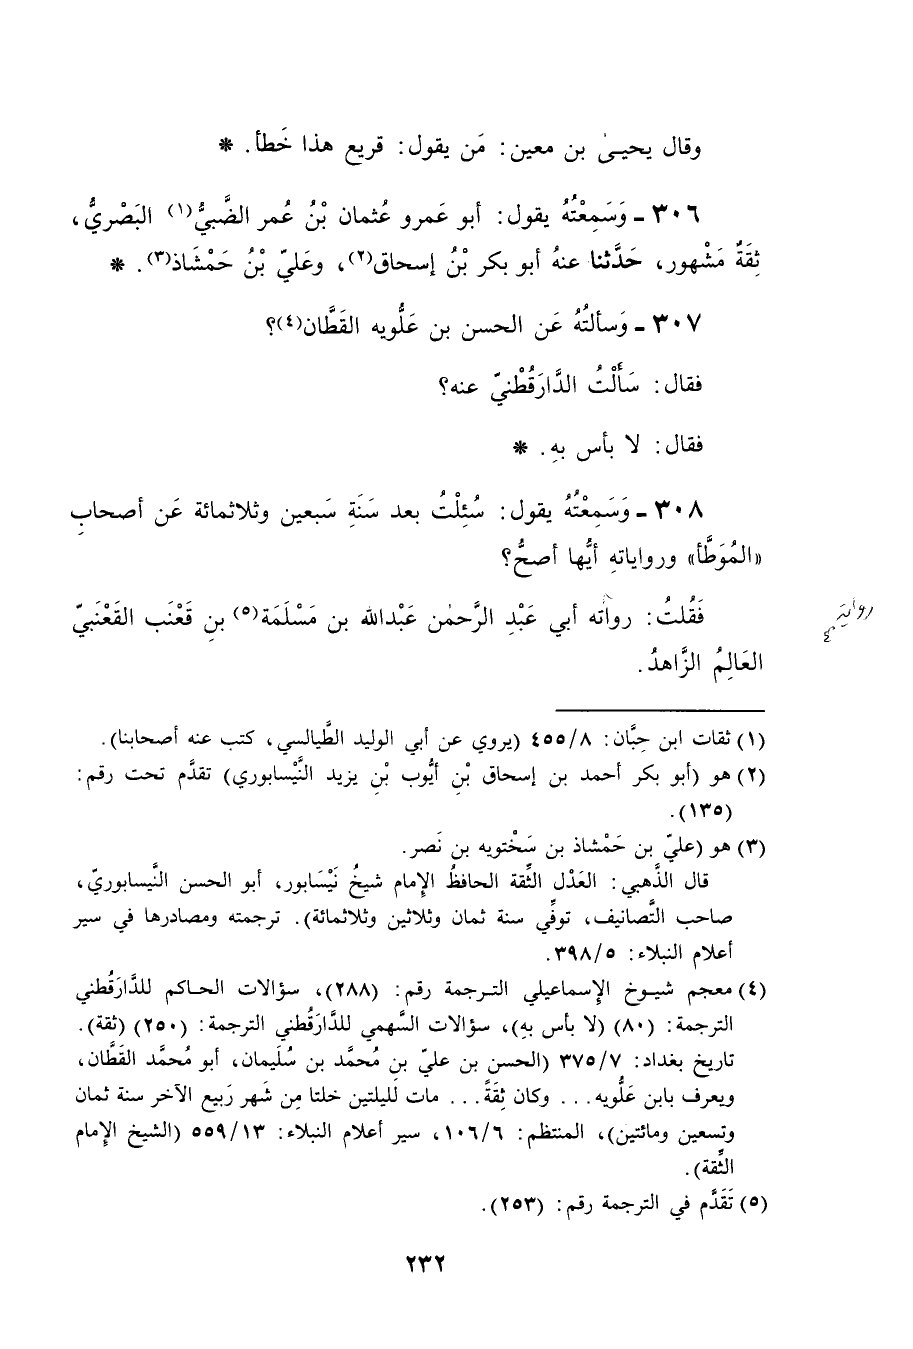 وقال يحيىٰ بن معين: مَن يقول: قريع هذا خَطأ. *
٣٠٦ ـ وَسَمِعْتُهُ يقول: أبو عَمرو عُثمان بْنُ عُمر الضَّبيُّ(١) البَصْريُّ،
ثِقَةٌ مَشْهور، حَدَّثنا عنهُ أبو بكر بْنُ إسحاق(٢)، وعَليّ بْنُ حَمْشَاذ(٣). *
٣٠٧ ـ وَسألتُهُ عَن الحسن بن عَلُّويه القَطَّان(٤)؟
فقال: سَأَلْتُ الدَّارَقُطْنيّ عنه؟
فقال: لا بأس بهِ. *
٣٠٨ ـ وَسَمِعْتُهُ يقول: سُئِلْتُ بعد سَنَةِ سَبعين وثلاثمائة عَن أصحابِ
«المُوَطَّأ» ورواياتهِ أيُّها أصحُّ؟
فَقُلتُ: رواته أبي عَبْدِ الرَّحمٰن عَبْدالله بن مَسْلَمَة(٥) بنِ قَعْنَب القَعْنَبيّ
رواية
العَالِمُ الزَّاهدُ.
(١) ثقات ابن حِبَّان: ٤٥٥/٨ (يروي عن أبي الوليد الطَّيالسي، كتب عنه أصحابنا).
(٢) هو (أبو بكر أحمد بن إسحاق بْنِ أيُّوب بْنِ يزيد النَّيْسابوري) تقدَّم تحت رقم:
(١٣٥).
(٣) هو (عليّ بن حَمْشاذ بن سَخْتويه بن نَصر.
قال الذَّهبي: العَدْل الثِّقة الحافظُ الإمام شيخُ نَيْسَابور، أبو الحسن النَّيسابوريّ،
صاحب التَّصانيف، توفِّي سنة ثمان وثلاثين وثلاثمائة). ترجمته ومصادرها في سير
أعلام النبلاء: ٣٩٨/٥.
(٤) معجم شيوخ الإسماعيلي الترجمة رقم: (٢٨٨)، سؤالات الحاكم للدَّارَقُطني
الترجمة: (٨٠) (لا بأس بهِ)، سؤالات السَّهمي للدَّارَقُطني الترجمة: (٢٥٠) (ثقة).
تاريخ بغداد: ٣٧٥/٧ (الحسن بن عليّ بنِ مُحمَّد بن سُلَيمان، أبو مُحمَّد القَطَّان،
ويعرف بابن عَلُّويه. . . وكان ثِقَةً. . . مات لليلتين خلتا مِن شَهر رَبيع الآخر سنة ثمان
وتسعين ومائتين)، المنتظم: ١٠٦/٦، سير أعلام النبلاء: ٥٥٩/١٣ (الشيخ الإمام
الثِّقة).
(٥) تَقَدَّم في الترجمة رقم: (٢٥٣).
٢٣٢